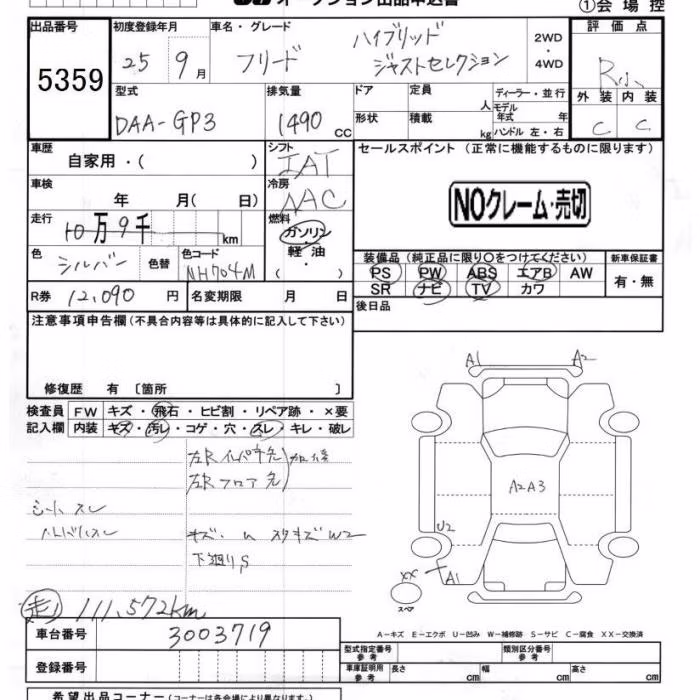 オークション出品申込書
①会場控
出品番号 初度登録年月 車名・グレード 評価点
5359 25 9月 フリード ハイブリッド ジャストセレクション 2WD ・ 4WD
型式 排気量 ドア 定員 人 ディーラー・並行 外装 内装
DAA-GP3 1490 cc 形状 積載 kg モデル年式 年 ハンドル 左・右 C C
車歴 シフト セールスポイント (正常に機能するものに限ります)
自家用・( ) IAT
車検 冷房
年 月( 日) AAC NOクレーム・売切
走行 燃料
10万9千 km ガソリン・軽油・( )
色 シルバー 色替 色コード NH704M
装備品 (純正品に限り○をつけてください) 新車保証書
PS PW ABS エアB AW 有・無
SR ナビ TV カワ
R券 12,090 円 名変期限 月 日 後日品
注意事項申告欄 (不具合内容等は具体的に記入して下さい)
修復歴 有 〔箇所 〕
検査員 FW キズ・飛石・ヒビ割・リペア跡・×要
記入欄 内装 キズ・汚レ・コゲ・穴・スレ・キレ・破レ
A1 A2
左Rフロア先
A2A3
シートスレ
ハンドルスレ
U2
下廻りS
XX A1
スペア
走 111,572km
A-キズ E-エクボ U-凹み W-補修跡 S-サビ C-腐食 XX-交換済
車台番号 3003719
型式指定番号 参考 類別区分番号 参考
登録番号 車庫証明用 参考 長さ cm 幅 cm 高さ cm
希望出品コーナー (コーナーは各会場により異なります。)